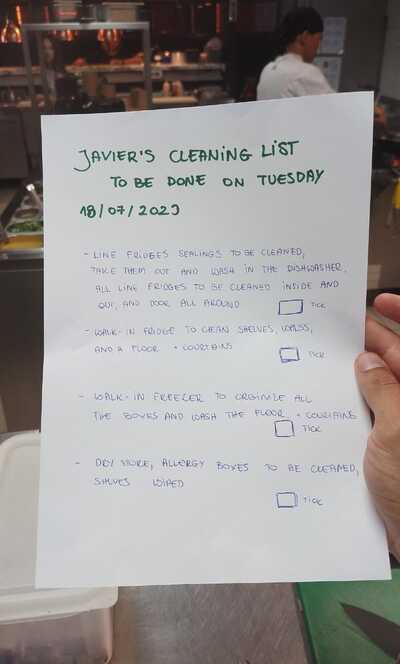 JAVIER'S CLEANING LIST
TO BE DONE ON TUESDAY
18/07/2023
- LINE FRIDGES SEALINGS TO BE CLEANED,
TAKE THEM OUT AND WASH IN THE DISHWASHER,
ALL LINE FRIDGES TO BE CLEANED INSIDE AND
OUT, AND DOOR ALL AROUND TICK
- WALK-IN FRIDGE TO CLEAN SHELVES, WALSS,
AND A FLOOR + COURTAINS
TICK
- WALK-IN FREEZER TO ORGINIZE ALL
THE BOXES AND WASH THE FLOOR + COURTAINS
TICK
- DRY STORE, ALLERGY BOXES TO BE CLEANED,
SHELVES WIPED
TICK